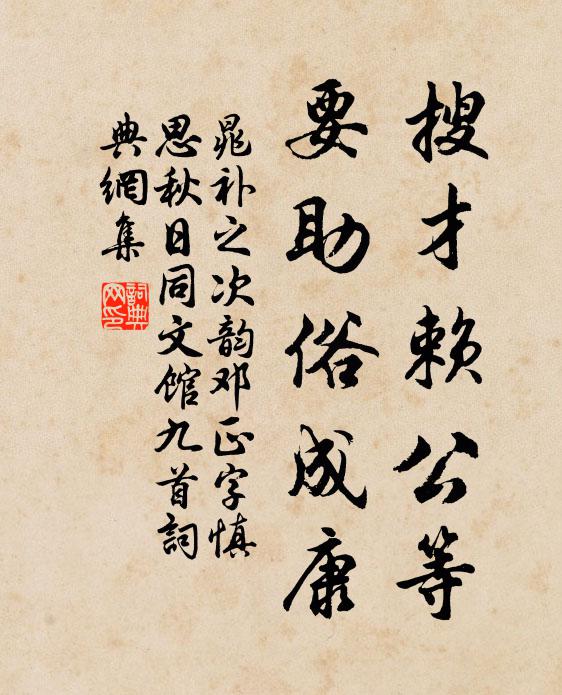 搜才赖公等
要助俗成康
晁补之次韵邓正字慎
思秋日同文馆九首詞
典網集
詞典网印